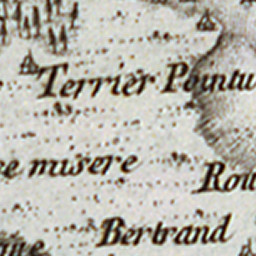 Terrier Pointu
ce misere
Rou
Bertrand